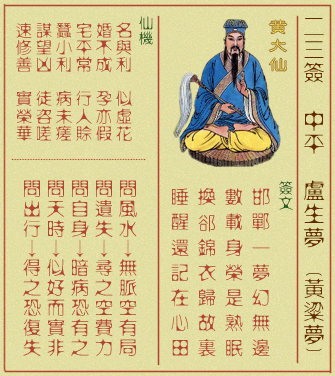 二三簽 中平 盧生夢（黃粱夢）
黃大仙
簽文
邯鄲一夢幻無邊
數載身榮是熟眠
換郤錦衣歸故裏
睡醒還記在心田
仙機
名與利 似虛花
婚不成 孕亦假
宅平常 行人賒
蠶小利 病未瘥
謀望凶 徒咨嗟
速修善 實榮華
問風水→無脈空有局
問遺失→尋之空費力
問自身→暗病恐有之
問天時→似好而實非
問出行→得之恐復失